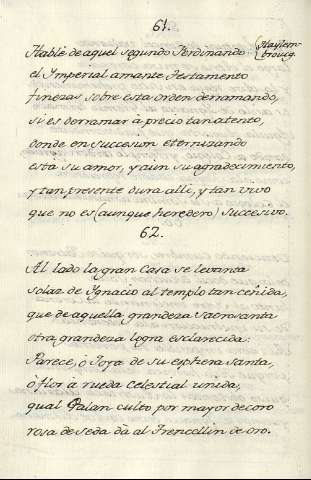 61.
Hablè de aquel segundo Ferdinando
el Imperial amante testamento
finezas sobre esta orden derramando,
si es derramar à precio tan atento,
donde en succesion eternizando
està su amor, y aun su agradecimiento,
y tan presente dura alli, y tan vivo
que no es (aunque heredero) succesivo.
62.
Al lado la gran Casa se levanta
solar de Ignacio al templo tan ceñida,
que de aquella grandeza sacrosanta
otra grandeza logra esclarecida:
Parece, ò Joya de su esphera santa,
ò flor à rueda celestial unida,
qual Galan culto por mayor decoro
rosa de seda dà al Trencellin de oro.